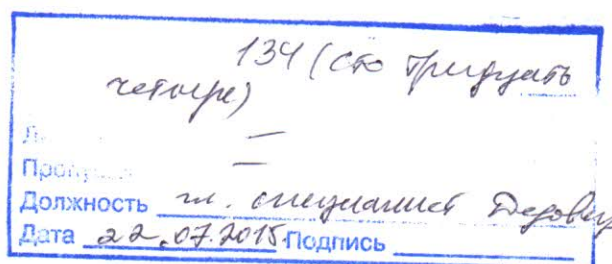 134 (сто тридцать
четыре)
—
Пропу —
Должность гл. специалист
Дата 22.07.2015 Подпись